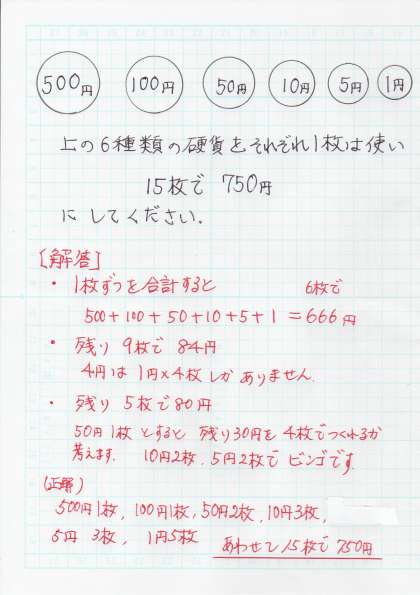 500円 100円 50円 10円 5円 1円
上の6種類の硬貨をそれぞれ1枚は使い
15枚で 750円
にしてください.
[解答]
・ 1枚ずつを合計すると 6枚で
500+100+50+10+5+1 =666円
・ 残り 9枚で 84円
4円は 1円×4枚しかありません.
・ 残り 5枚で80円
50円1枚 とすると 残り30円を 4枚でつくれるか
考えます. 10円2枚、5円2枚で ビンゴです.
(正解)
500円1枚, 100円1枚, 50円2枚, 10円3枚,
5円 3枚, 1円5枚 あわせて15枚で 750円